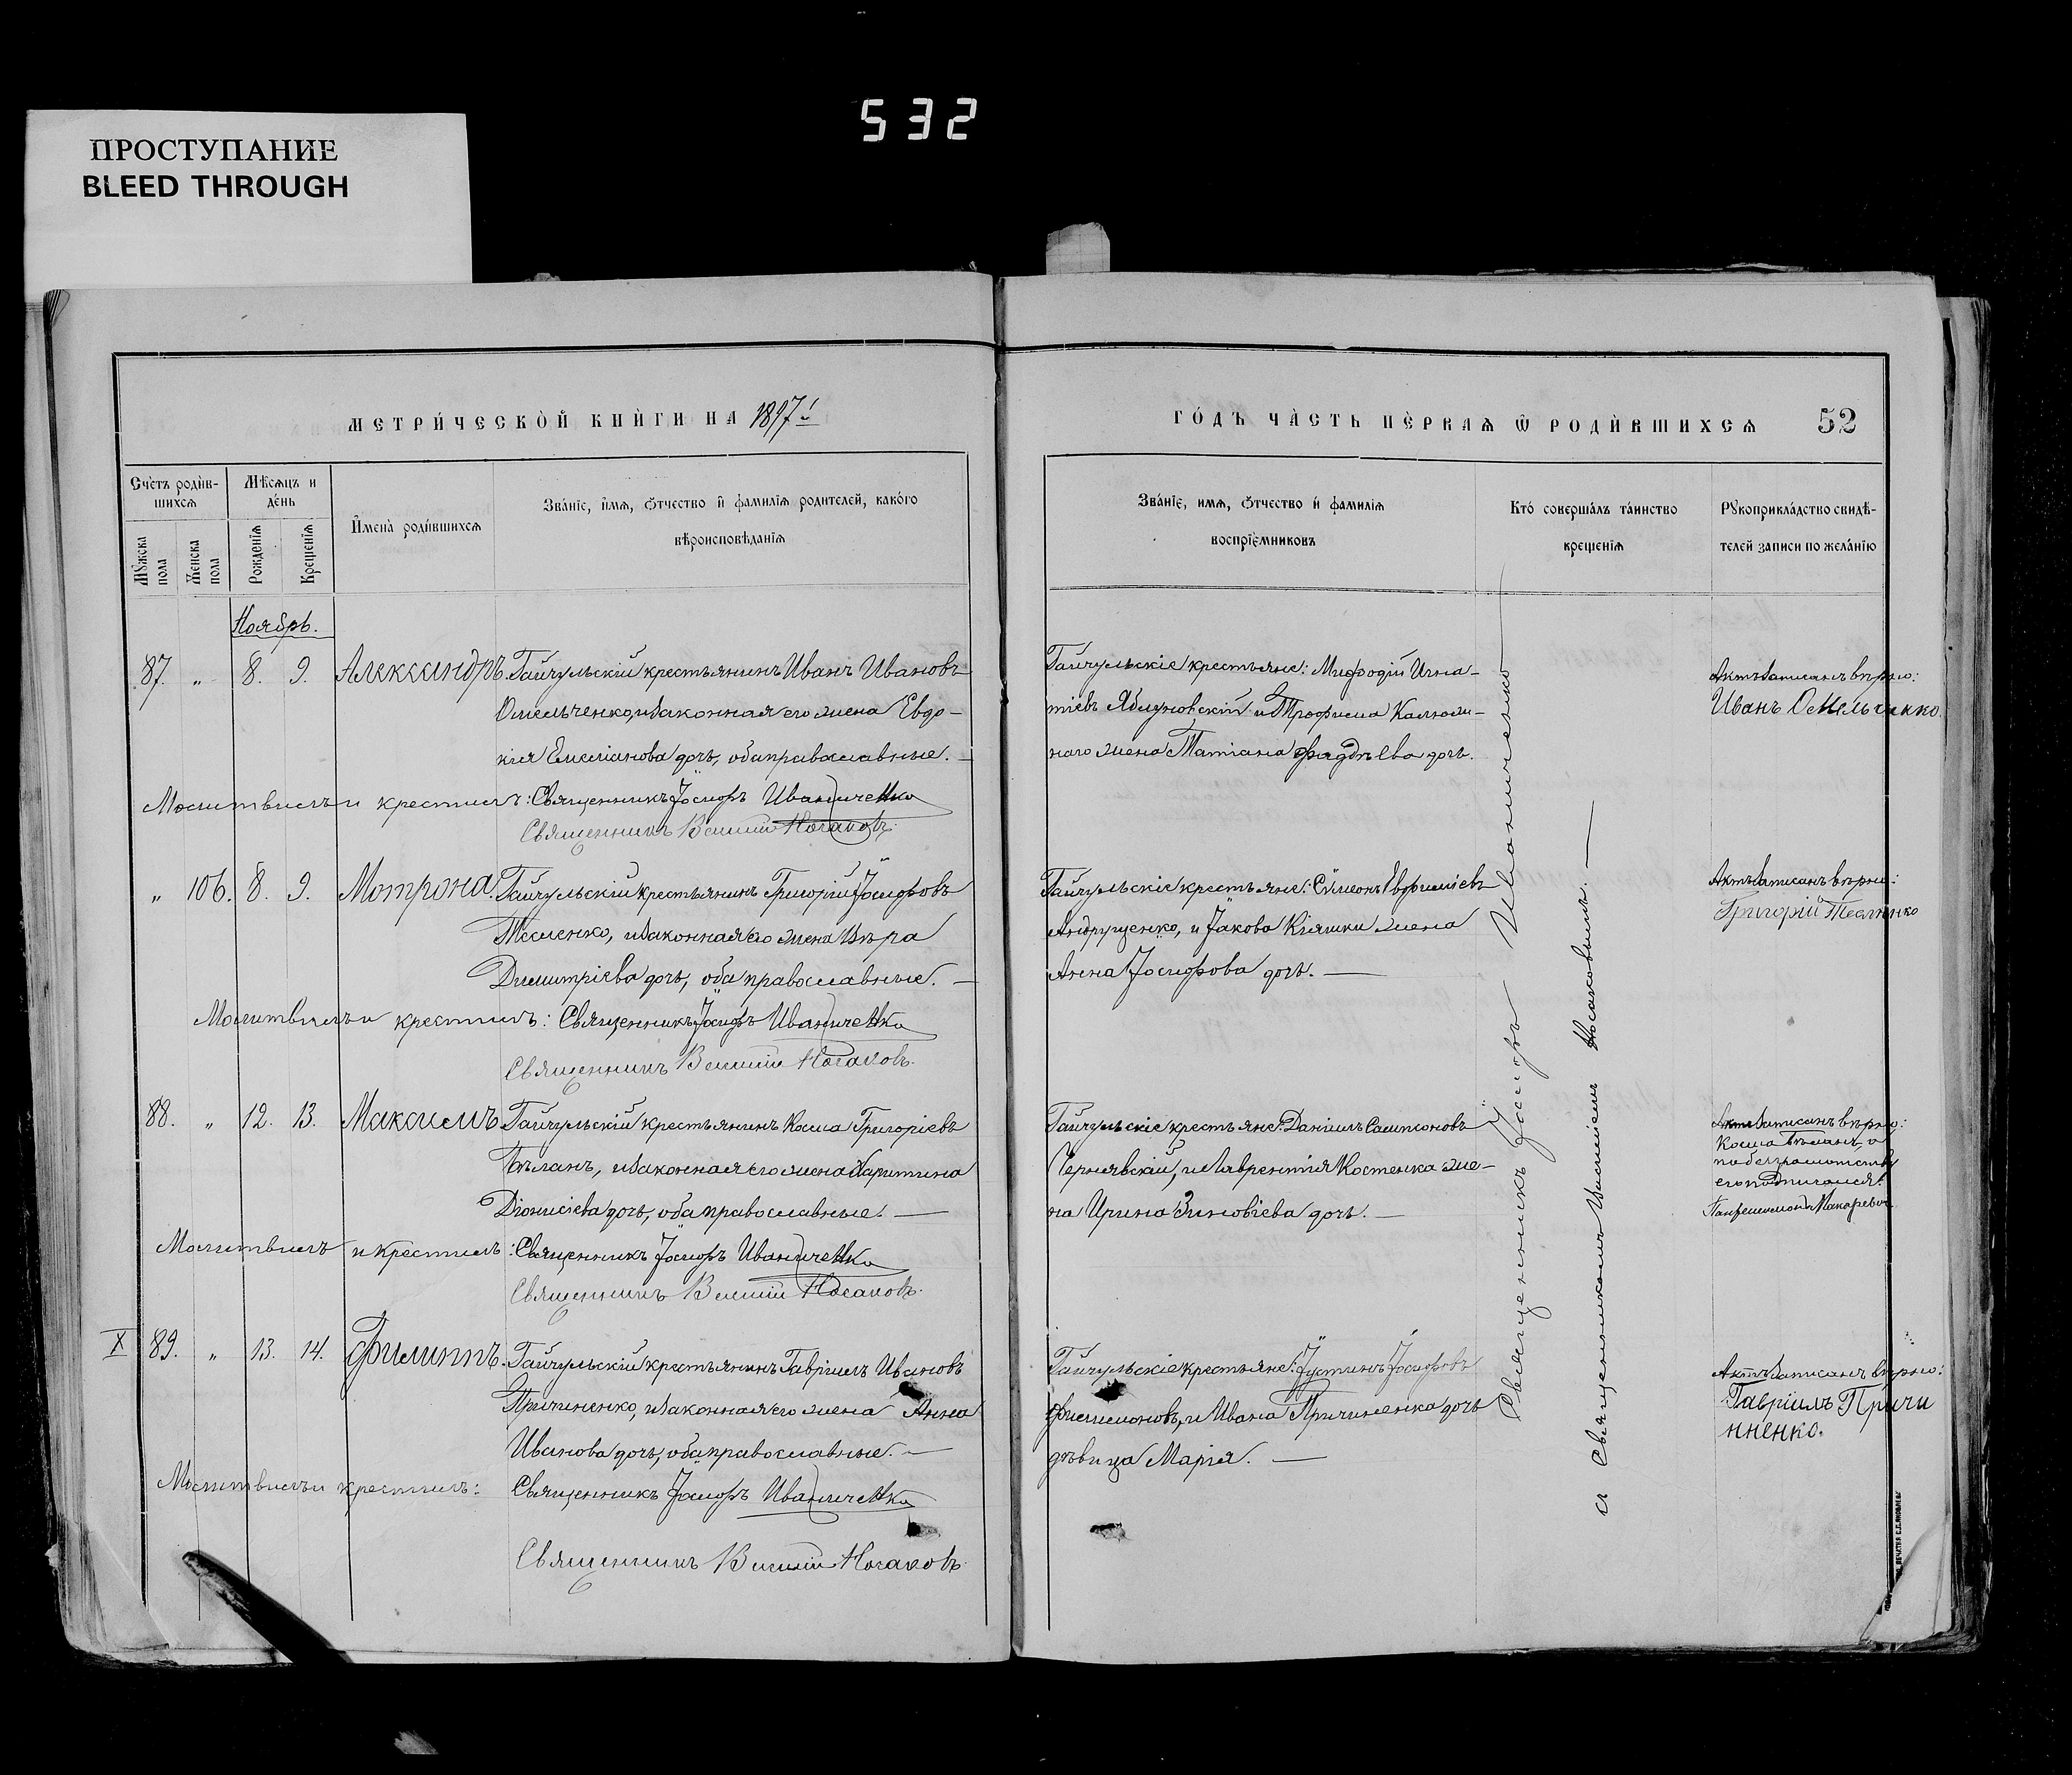 532
ПРОСТУПАНИЕ
BLEED THROUGH
МЕТРИ́ЧЕСКОЙ КНИ́ГИ НА 1897
ГО́ДЪ ЧА́СТЬ ПЕ́РВАѦ Ѿ РОДИ́ВШИХСѦ 52
Сче́тъ роди́в-
шихсѧ
Мꙋ́жска пола
Же́нска пола
Мѣ́сѧцъ и
де́нь
Рожденїѧ
Крещенїѧ
И҆мена̀ роди́вшихсѧ
Зва́нїе, и҆́мѧ, ѻ҆́тчество и҆ фамилїѧ родителей, како́го
вѣроисповѣ́данїѧ
Зва́нїе, имѧ, ѻ҆́тчество и҆ фамилїѧ
воспрїе́мниковъ
Кто́ соверша́лъ та́инство
крещенїѧ
Рꙋкоприкла́дство свидѣ́-
телей записи по жела́нїю
Ноябрь.
87. „ 8. 9. Александръ. Гайчульскій крестьянинъ Иванъ Ивановъ
Омельченко, и законная его жена Евдо-
кія Емеліанова дочь, оба православные. —
Молитвилъ и крестилъ: Священникъ Іосифъ Иваниченко
Священникъ Носаковъ.
Гайчульскіе крестьяне: Мифодій Игна-
тіевъ Яблуновскій и Трофима Калюж-
наго жена Татіана Фадѣева дочь.
Актъ записанъ вѣрно:
Иванъ Омельченко
„ 106. 8. 9. Мотрона. Гайчульскій крестьянинъ Григорій Іосифовъ
Тесленко, и законная его жена Вѣра
Димитріева дочь, оба православные. —
Молитвилъ и крестилъ: Священникъ Іосифъ Иваниченко
Священникъ Носаковъ.
Гайчульскіе крестьяне: Симеонъ Евфиміевъ
Андрущенко, и Іакова Кіяшки жена
Анна Іосифова дочь. —
Актъ записанъ вѣрно:
Григорій Тесленко
88. „ 12. 13. Максимъ Гайчульскій крестьянинъ Косма Григоріевъ
Бѣланъ, и законная его жена Харитина
Діонисіева дочь, оба православные. —
Молитвилъ и крестилъ: Священникъ Іосифъ Иваниченко
Священникъ Носаковъ.
Гайчульскіе крестьяне: Даніилъ Сампсоновъ
Чернявскій, и Лаврентія Костенка же-
на Ирина Зиновіева дочь. —
Актъ записанъ вѣрно:
Косма Бѣланъ, а
по безграмотству
его подписался:
Макаревъ
X 89. „ 13. 14. Филиппъ. Гайчульскій крестьянинъ Гавріилъ Ивановъ
Причиненко, и законная его жена Анна
Иванова дочь, оба православные. —
Молитвилъ и крестилъ: Священникъ Іосифъ Иваниченко
Священникъ Носаковъ.
Гайчульскіе крестьяне: Іустинъ Іосифовъ
Филимоновъ, и Ивана Причиненка дочь
дѣвица Марія. —
Актъ записанъ вѣрно:
Гавріилъ Причи
нненко.
Священникъ Іосифъ Иваниченко
съ Священникомъ Носаковымъ. —